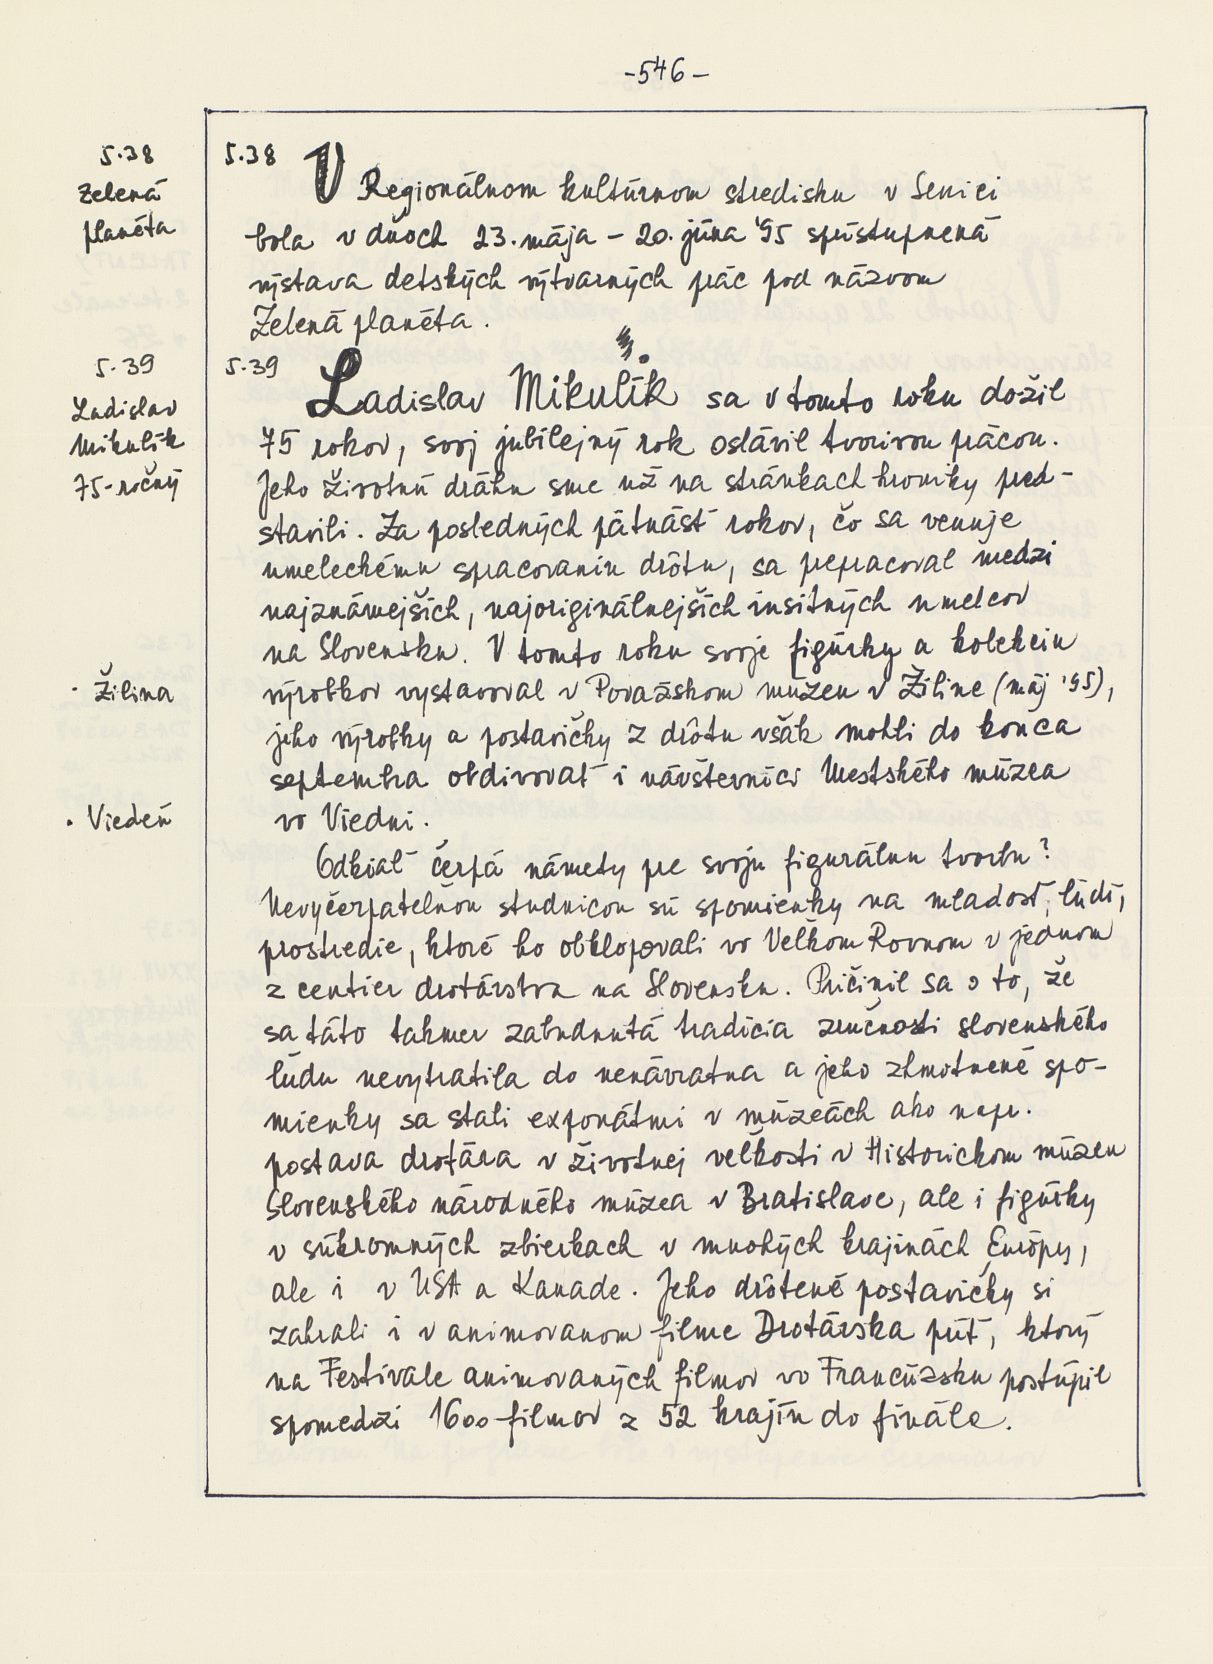 -546-
5.38
Zelená
planéta
5.38 V Regionálnom kultúrnom stredisku v Senici
bola v dňoch 23. mája - 20. júna '95 sprístupnená
výstava detských výtvarných prác pod názvom
Zelená planéta.
5.39
Ladislav
Mikulík
75-ročný
5.39 Ladislav Mikulík sa v tomto roku dožil
75 rokov, svoj jubilejný rok oslávil tvorivou prácou.
Jeho životnú dráhu sme už na stránkach kroniky pred-
stavili. Za posledných pätnásť rokov, čo sa venuje
umeleckému spracovaniu drôtu, sa prepracoval medzi
najznámejších, najoriginálnejších insitných umelcov
na Slovensku. V tomto roku svoje figúrky a kolekciu
· Žilina
výrobkov vystavoval v Považskom múzeu v Žiline (máj '95),
jeho výrobky a postavičky z drôtu však mohli do konca
septembra obdivovať i návštevníci Mestského múzea
· Viedeň
vo Viedni.
Odkiaľ čerpá námety pre svoju figurálnu tvorbu?
Nevyčerpateľnou studnicou sú spomienky na mladosť, ľudí,
prostredie, ktoré ho obklopovali vo Veľkom Rovnom v jednom
z centier drotárstva na Slovensku. Pričinil sa o to, že
sa táto takmer zabudnutá tradícia zručnosti slovenského
ľudu nevytratila do nenávratna a jeho zhmotnené spo-
mienky sa stali exponátmi v múzeách ako napr.
postava drotára v životnej veľkosti v Historickom múzeu
Slovenského národného múzea v Bratislave, ale i figúrky
v súkromných zbierkach v mnohých krajinách Európy,
ale i v USA a Kanade. Jeho drôtené postavičky si
zahrali i v animovanom filme Drotárska púť, ktorý
na Festivale animovaných filmov vo Francúzsku postúpil
spomedzi 1600 filmov z 52 krajín do finále.